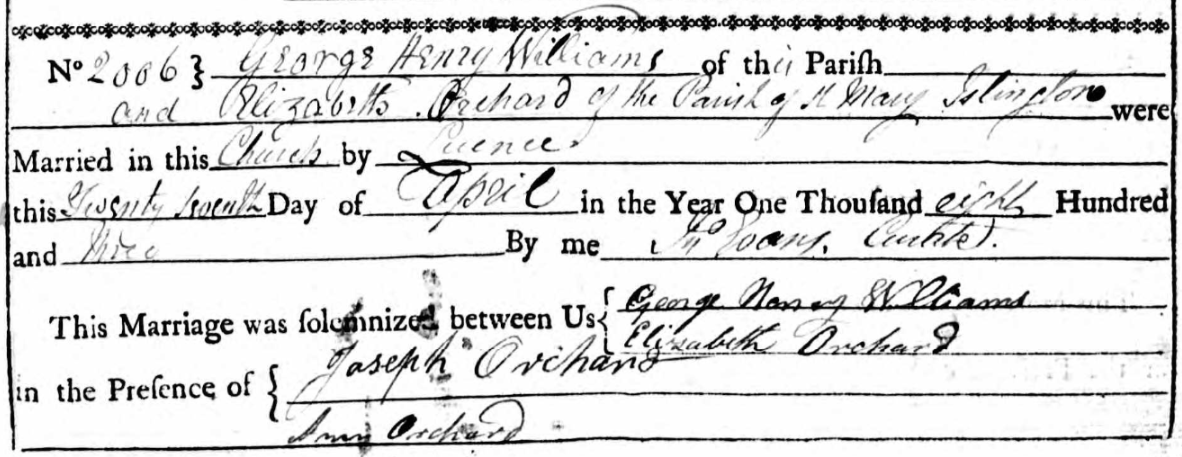 Nº 2006 } George Henry Williams of this Pariſh
and Elizabeth Orchard of the Parish of St Mary Islington were
Married in this Church by Licence
this Twenty seventh Day of April in the Year One Thouſand eight Hundred
and three By me Jno Evans, Curate.
This Marriage was ſolemnized between Us { George Henry Williams
Elizabeth Orchard
in the Preſence of { Joseph Orchard
Orchard